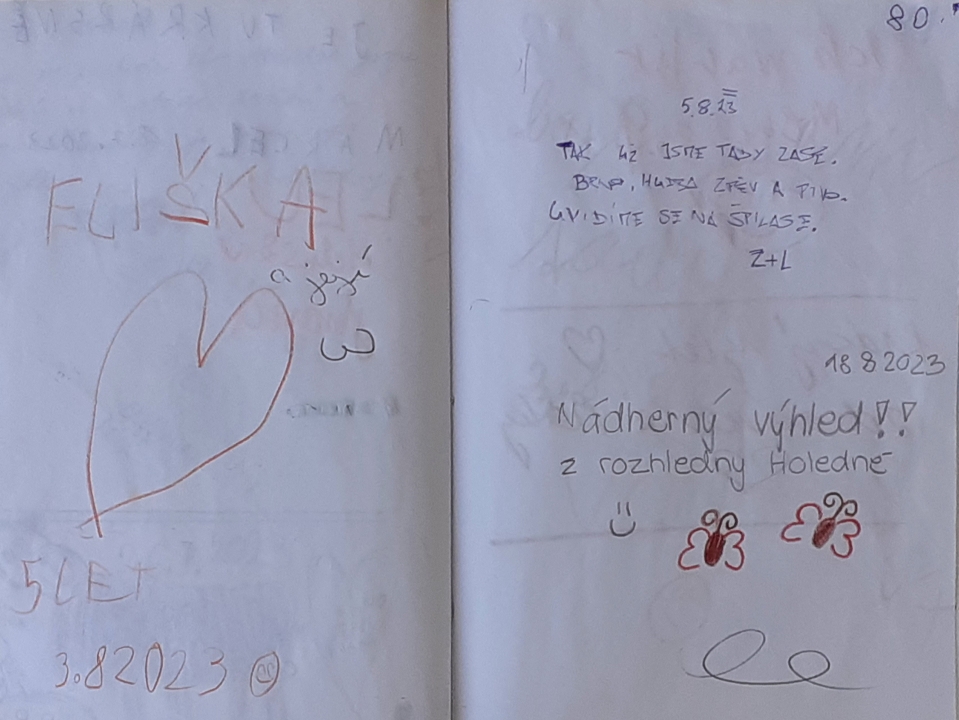 ELIŠKA
a její
3
5 LET
3.82023
80.
5.8.23
TAK UŽ JSME TADY ZASE.
BRNO, HUDBA ZPĚV A PIVO.
UVIDÍME SE NA ŠPILASE.
Z+L
18 8 2023
Nádherný výhled!!
z rozhledny Holedné